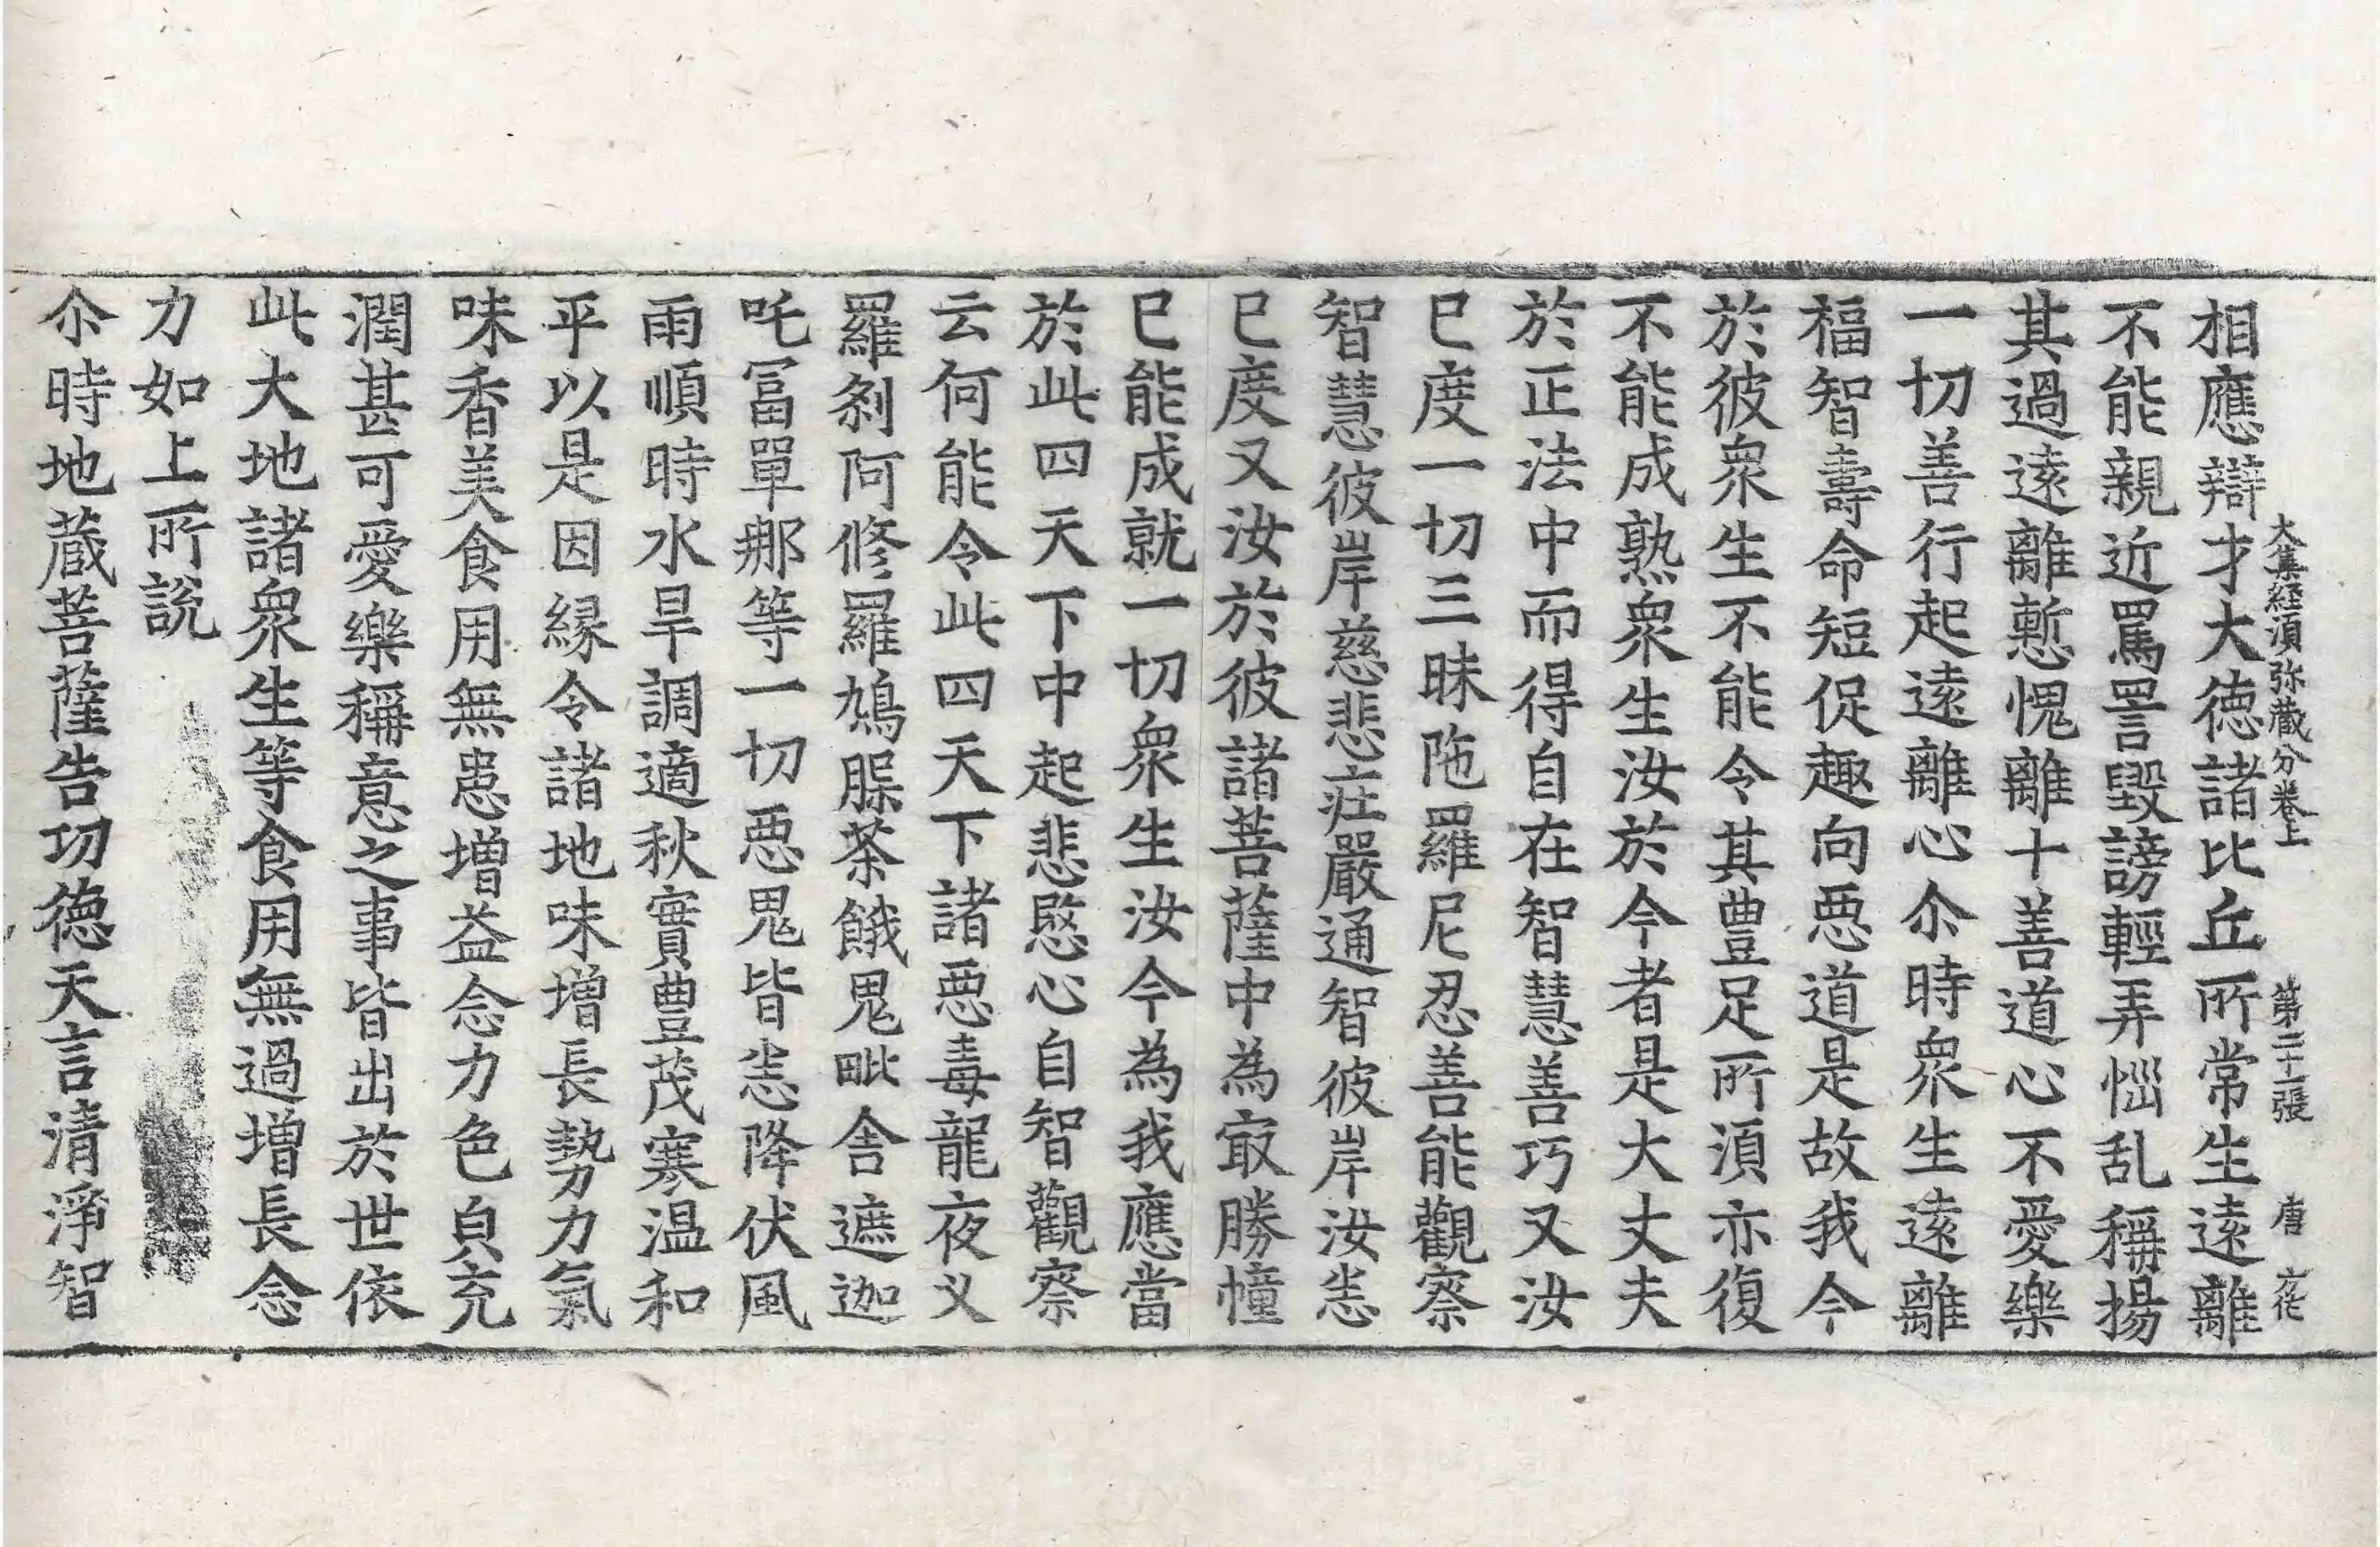 大集経湏弥蔵分卷上　第二十一張　唐
相應辯才大德諸比丘所常生遠離
不能親近罵詈毀謗輕弄惱乱稱揚
其過遠離慙愧離十善道心不愛樂
一切善行起遠離心尒時衆生遠離
福智壽命短促趣向惡道是故我今
於彼衆生不能令其豊足所湏亦復
不能成熟衆生汝於今者是大丈夫
於正法中而得自在智慧善巧又汝
已度一切三昧陁羅尼忍善能觀察
智慧彼岸慈悲庄嚴通智彼岸汝悉
已度又汝於彼諸菩薩中為㝡勝幢
已能成就一切衆生汝今為我應當
於此四天下中起悲愍心自智觀察
云何能令此四天下諸惡毒龍夜义
羅剎阿修羅鳩腺荼餓鬼毗舍遮迦
吒冨單那等一切惡鬼皆悉降伏風
雨順時水旱調適秋實豊茂寒温和
平以是因縁令諸地味增長勢力氣
味香美食用無患增益念力色皃充
潤甚可愛樂稱意之事皆出於世依
此大地諸衆生等食用無過增長念
力如上所說
尒時地蔵菩薩告功德天言清淨智